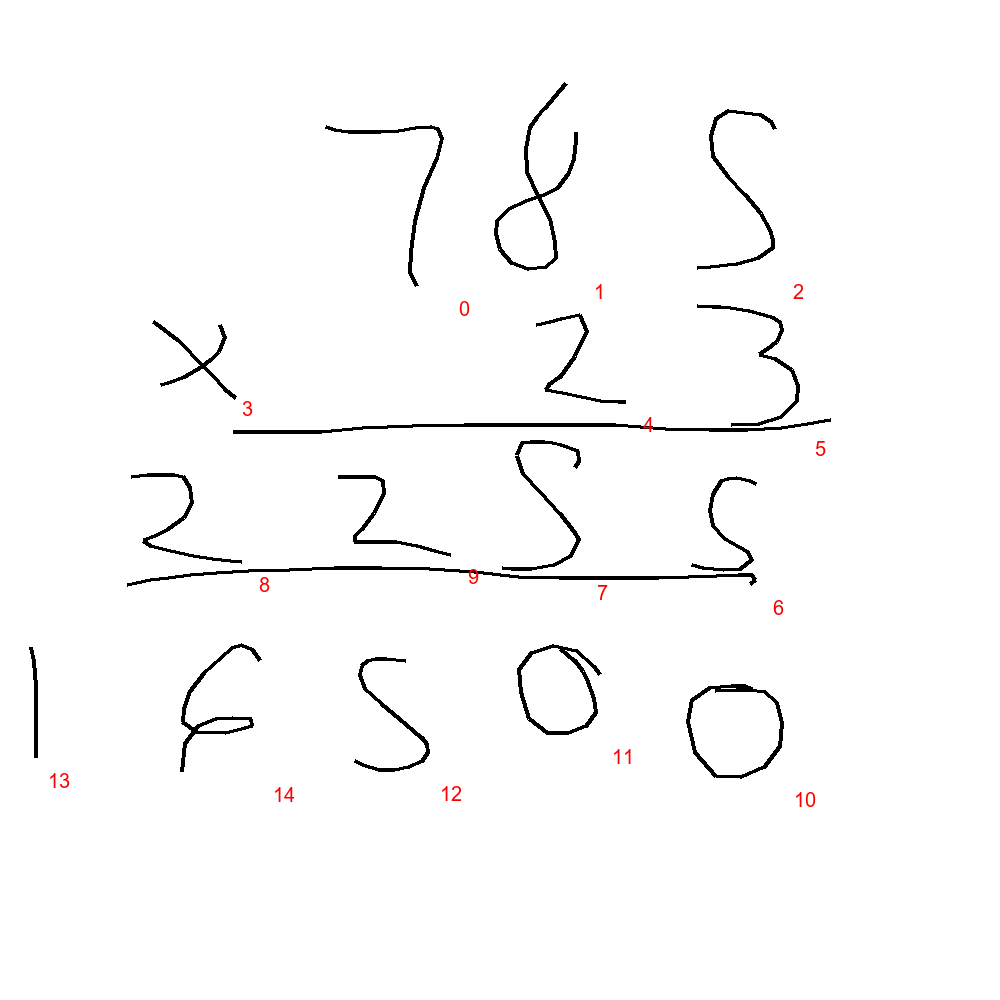 785
0 1 2
× 23
3 4 5
2255
8 9 7 6
1 6500
13 14 12 11 10